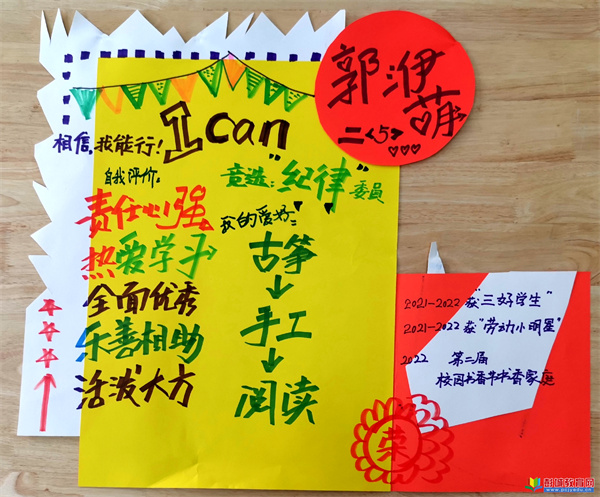 郭洢萌
二<5>
相信,我能行!
1 can
自我评价:
责任心强
热爱学习
全面优秀
乐善相助
活泼大方
竞选:"纪律"委员
我的爱好:
古筝
手工
阅读
2021-2022获"三好学生"
2021-2022获"劳动小明星"
2022 第二届
校园书香华书香家庭
荣
彭城教育网
www.pcjyw.cn